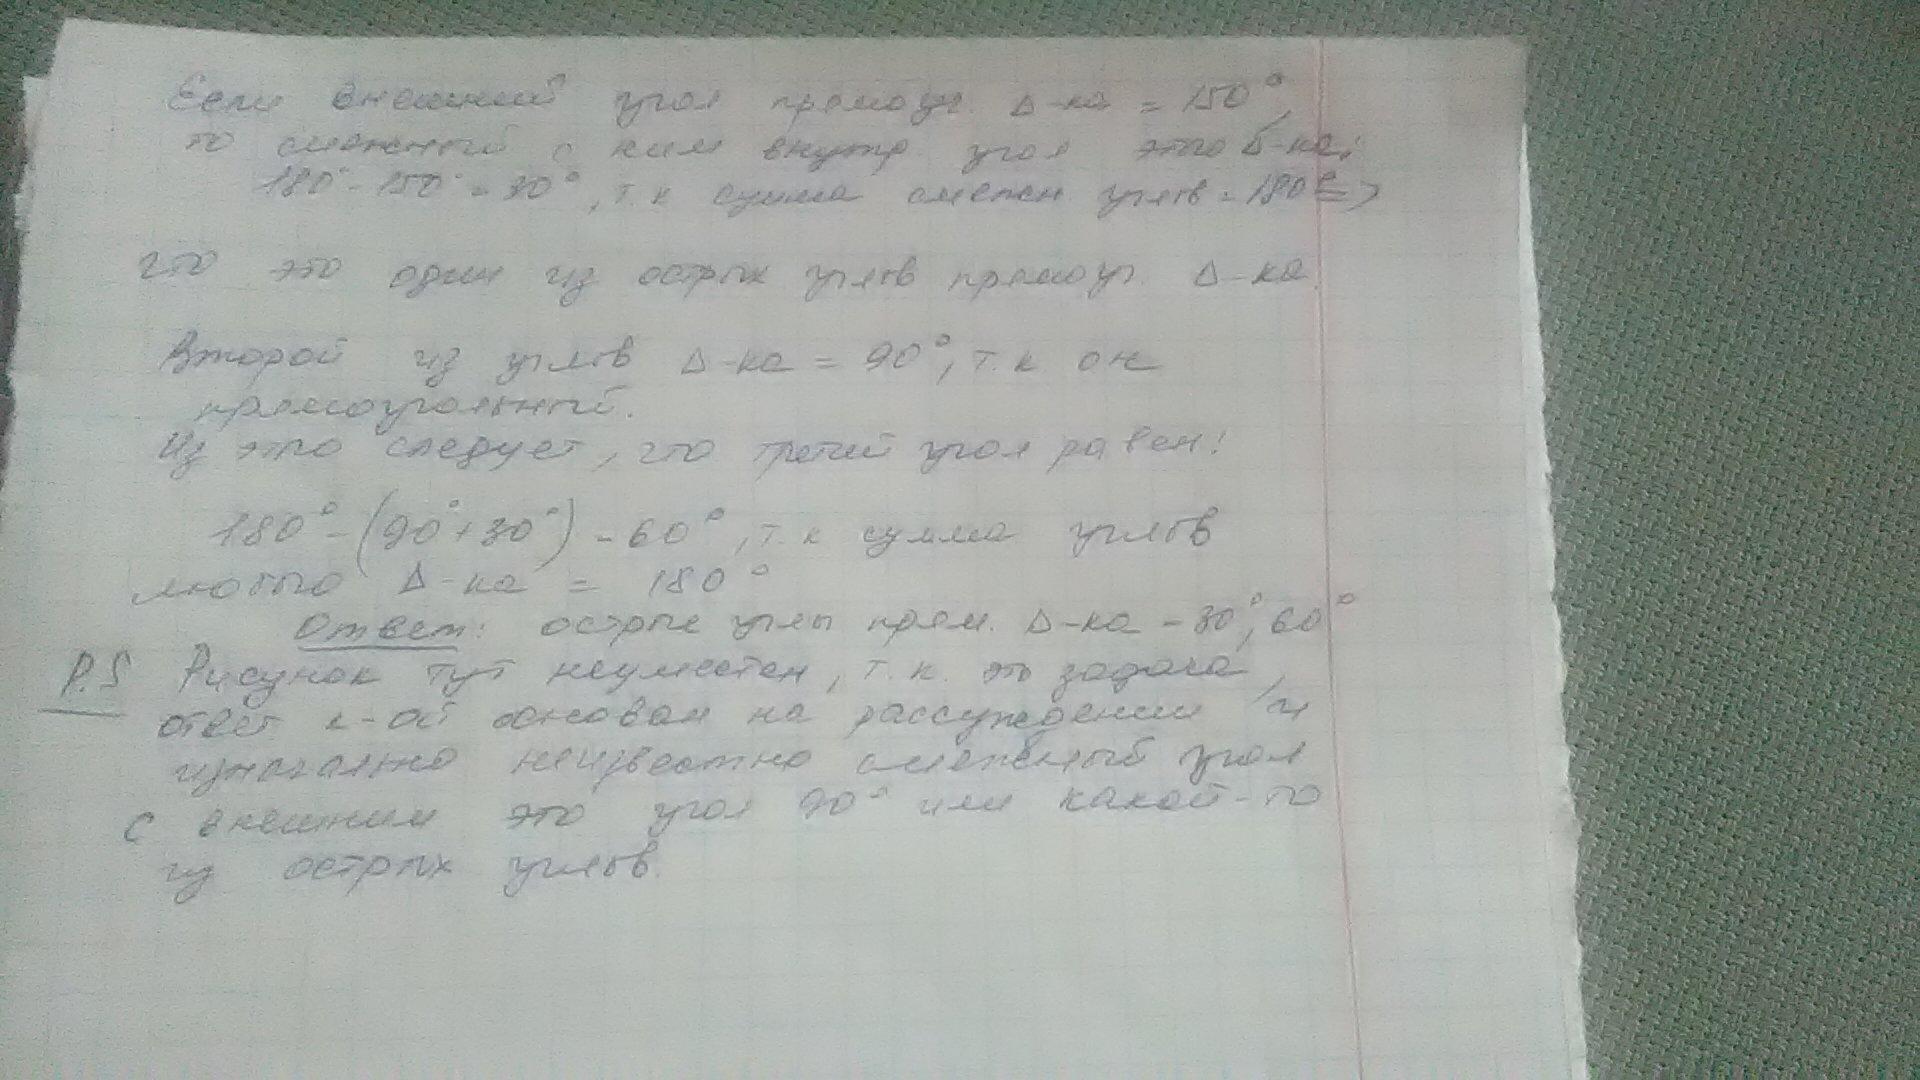 Если внешний угол прямоуг. Δ-ка = 150°,
то смежный с ним внутр. угол этого Δ-ка:
180° - 150° = 30°, т.к сумма смежн углов = 180° =>
что это один из острых углов прямоуг. Δ-ка.
Второй из углов Δ-ка = 90°, т.к он
прямоугольный.
Из этого следует, что третий угол равен:
180° - (90° + 30°) = 60°, т.к сумма углов
любого Δ-ка = 180°
Ответ: острые углы прям. Δ-ка - 30°, 60°
P.S Рисунок тут неуместен, т.к. это задача,
ответ к-ой основан на рассуждении, и
изначально неизвестно смежный угол
с внешним это угол 90° или какой-то
из острых углов.